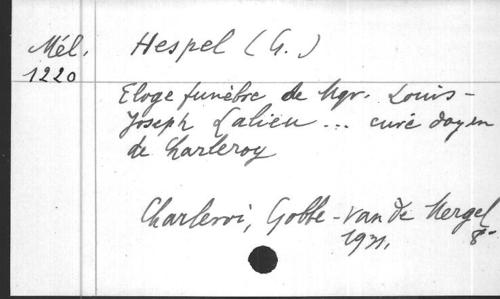 Mél.
1220
Hespel (G.)
Eloge funèbre de Mgr. Louis-
Joseph Lalieu ... curé doyen
de Charleroy
Charleroi, Gobbe-Van de Mergel
1931.
8-